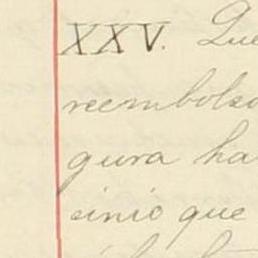 XXV. Que
reembolso
gura ha
sinio que